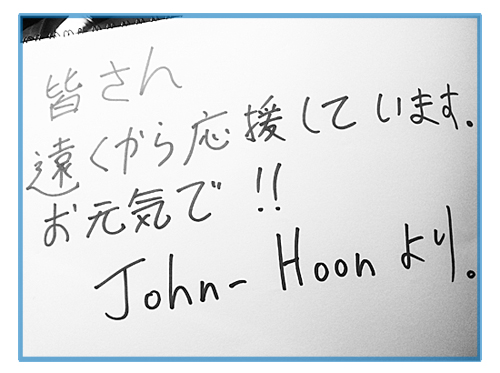 皆さん
遠くから応援しています。
お元気で!!
John-Hoonより。